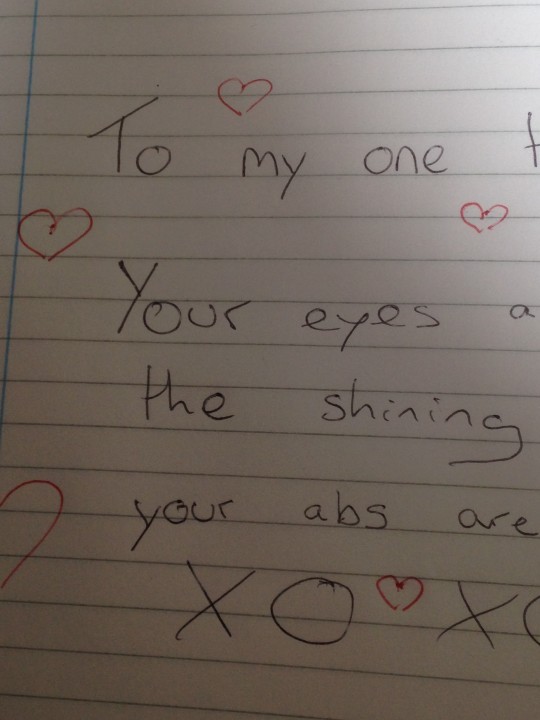 To my one t
Your eyes a
the shining
your abs are
XO XO